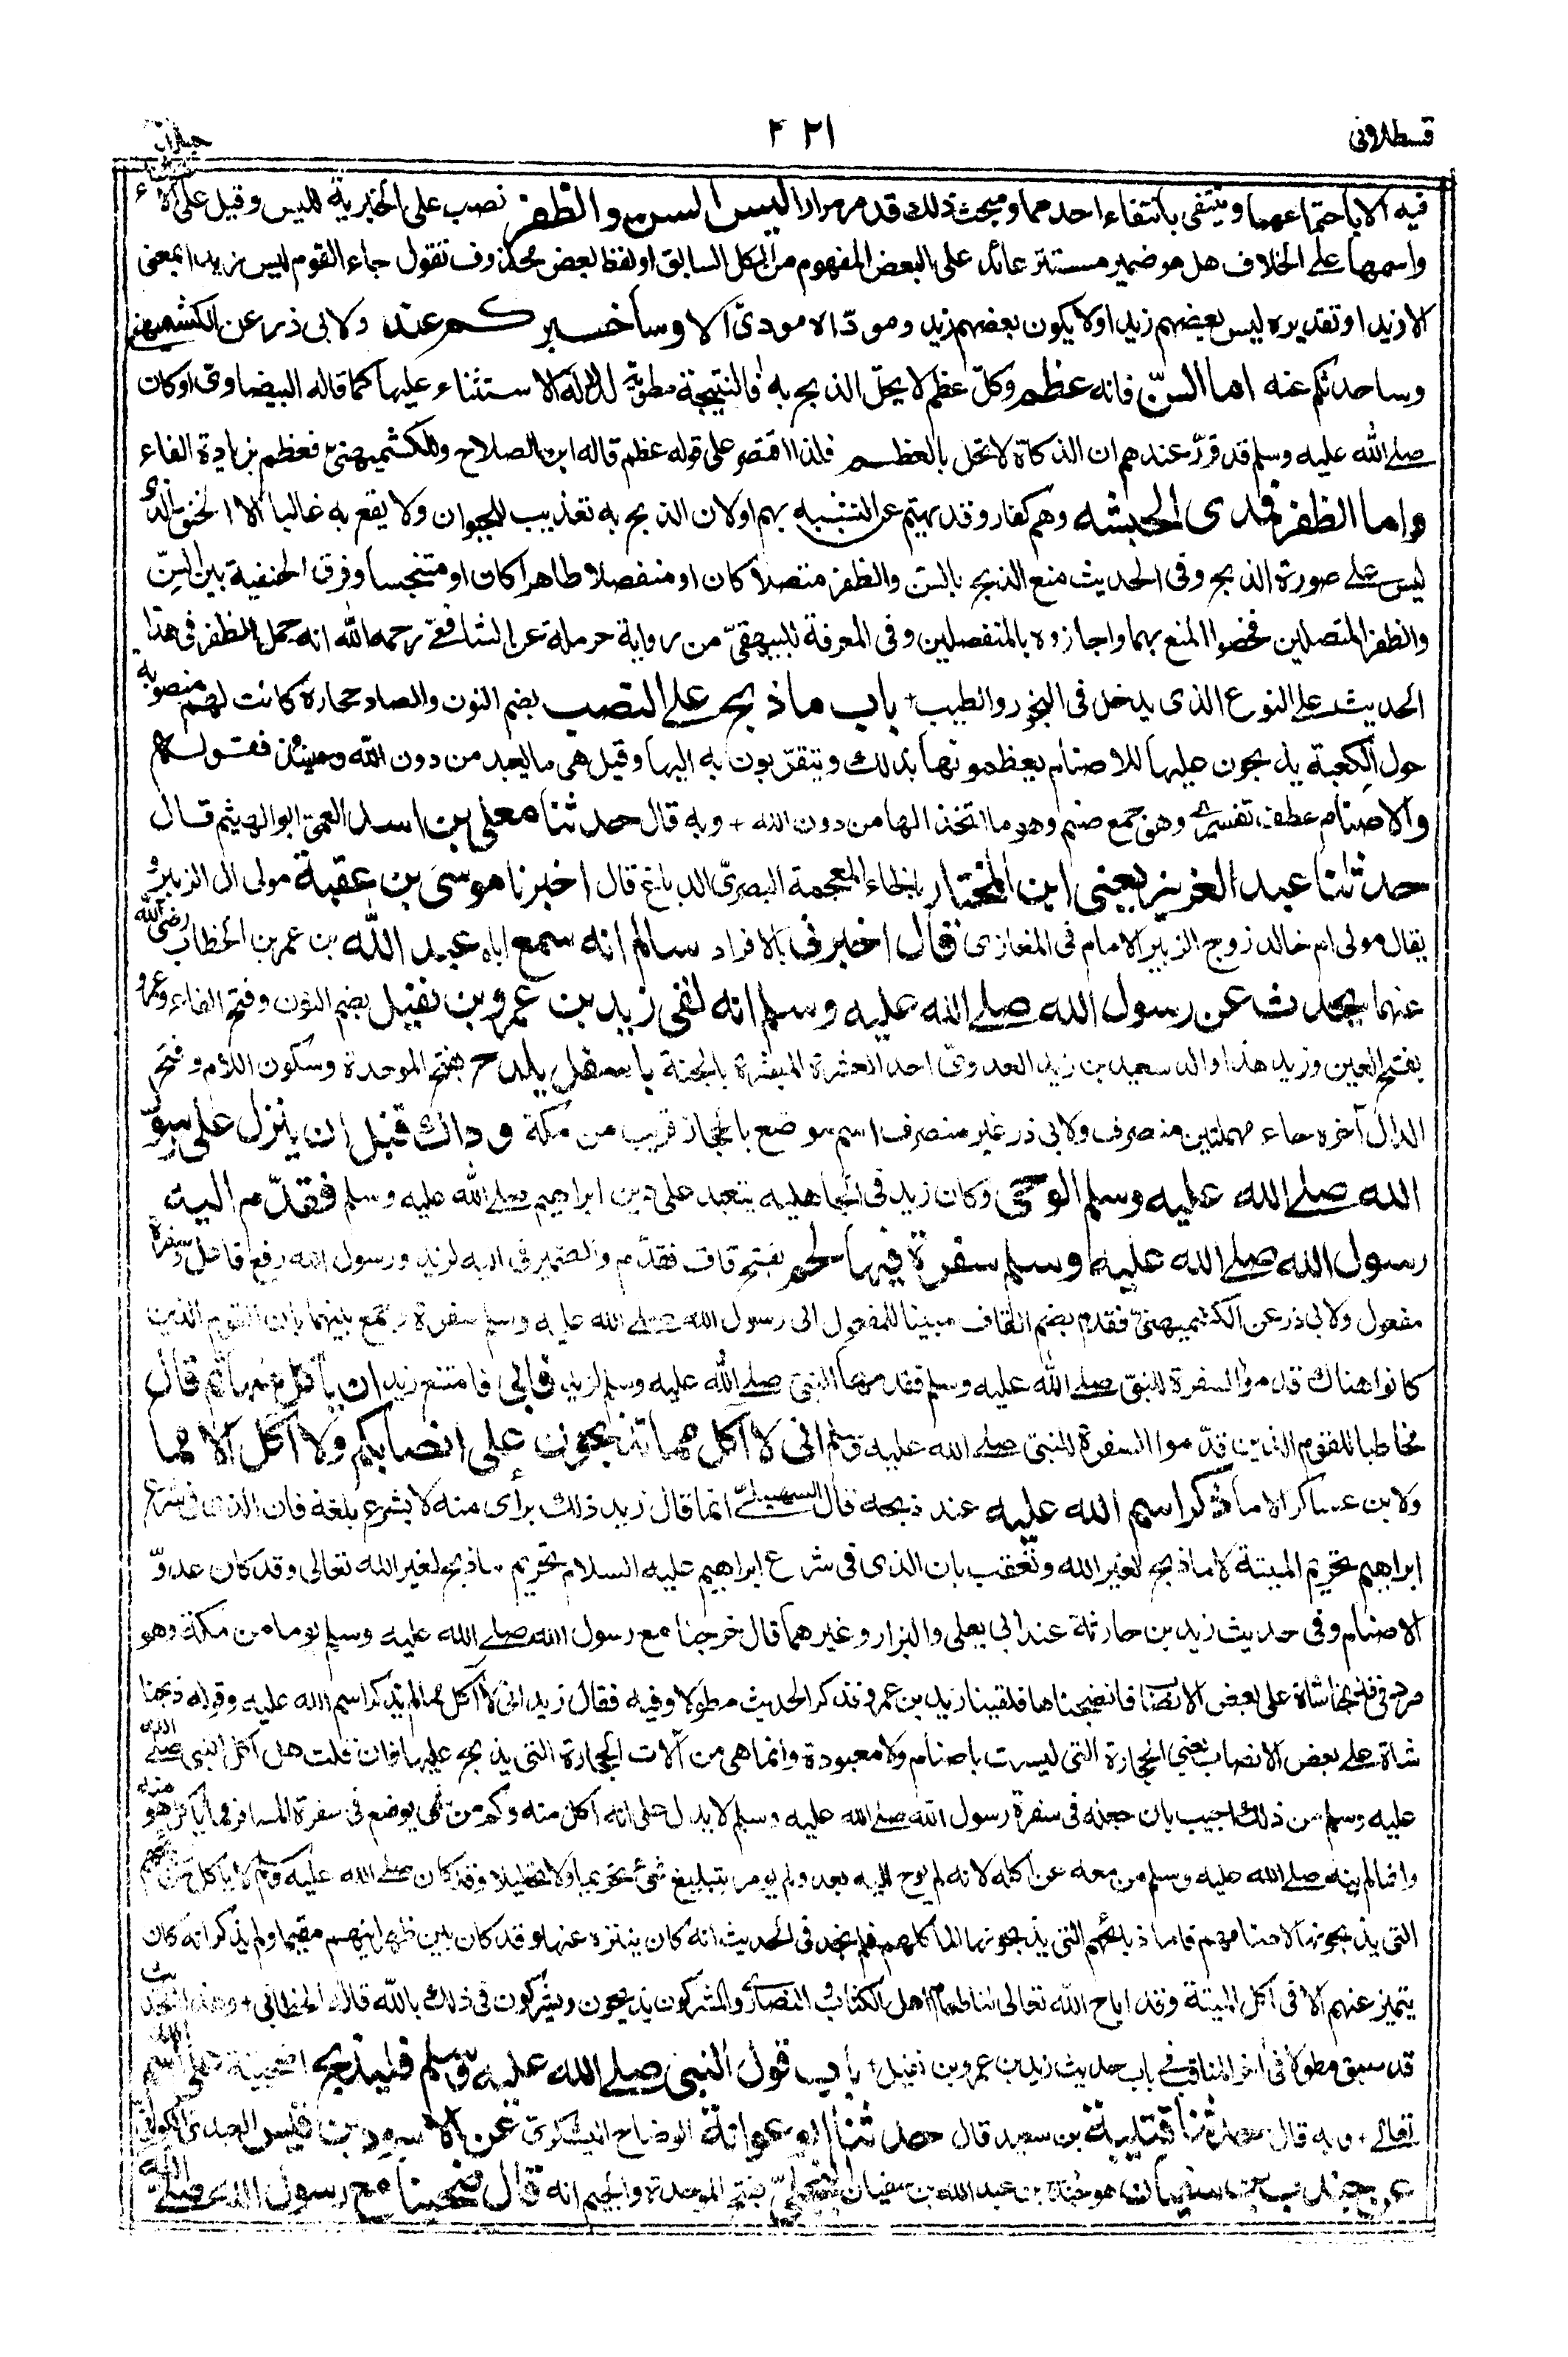 قسطلانی
۲۲۱
فيه الا باجتماعهما وينتفى بانتفاء احدهما ومبحث ذلك قد مر مرارا ليس السن والظفر نصب على الخبرية لليس وقيل على
واسمها على الخلاف هل هو ضمير مستتر عائد على البعض المفهوم من الكل السابق او لفظ بعض محذوف تقول جاء القوم ليس زيدا بمعنى
الا زيدا وتقديره ليس بعضهم زيدا ولا يكون بعضهم زيد ومودّاه مودىّ الا وسأخبركم عنه ولابى ذر عن الكشميهنى
وساحدثكم عنه اما السنّ فانه عظم وكلّ عظم لا يحلّ الذبح به فالنتيجة مطوية لدلالة الاستثناء عليها كما قاله البيضاوى او كان
صلے الله عليه وسلم قد قرّر عندهم ان الذكاة لا تحل بالعظم فلذا اقتصر على قوله عظم قاله ابن الصلاح وللكشميهنى فعظم بزيادة الفاء
واما الظفر فمدى الحبشة وهم كفار وقد نهيتم عن التشبه بهم او لان الذبح به تعذيب للحيوان ولا يقع به غالبا الا الخنق الذى
ليس على صورة الذبح وفى الحديث منع الذبح بالسن والظفر متصلا كان او منفصلا طاهرا كان او متنجسا وفرق الحنفية بين السنّ
والظفر المتصلين فخصوا المنع بهما واجازوه بالمنفصلين وفى المعرفة للبيهقىّ من رواية حرملة عن الشافعىّ رحمه الله انه حمل الظفر فى هذا
الحديث على النوع الذى يدخل فى البخور والطيب + باب ما ذبح على النصب بضم النون والصاد حجارة كانت لهم منصوبة
حول الكعبة يذبحون عليها للاصنام يعظمونها بذلك ويتقرّبون به اليها وقيل هى ما يعبد من دون الله وحينئذ فقوله
والاصنام عطف تفسيرى وهى جمع صنم وهو ما اتخذ الها من دون الله + وبه قال حدثنا معلى بن اسد العمى ابو الهيثم قال
حدثنا عبد العزيز يعنى ابن المختار بالخاء المعجمة البصرىّ الدباغ قال اخبرنا موسى بن عقبة مولى ال الزبير
يقال مولى ام خالد زوج الزبير الامام فى المغازى قال اخبرنى بالافراد سالم انه سمع اباه عبد الله بن عمر بن الخطاب رضى الله
عنهما يحدث عن رسول الله صلے الله عليه وسلم انه لقى زيد بن عمرو بن نفيل بضم النون وفتح الفاء وعمرو
بفتح العين وزيد هذا والد سعيد بن زيد العدوىّ احد العشرة المبشرة بالجنة باسفل بلدح بفتح الموحدة وسكون اللام وفتح
الدال آخره حاء مهملتين منصرف ولابى ذر غير منصرف اسم موضع بالحجاز قريب من مكة وذاك قبل ان ينزل على رسول
الله صلے الله عليه وسلم الوحى وكان زيد فى الجاهلية يتعبد على دين ابراهيم صلے الله عليه وسلم فقدّم اليه
رسول الله صلے الله عليه وسلم سفرة فيها لحم بفتح قاف فقدّم والضمير فى اليه لزيد ورسول الله رفع فاعل وسفرة
مفعول ولابى ذر عن الكشميهنىّ فقدم بضم القاف مبنيا للمفعول الى رسول الله صلے الله عليه وسلم سفرة وجمع بينهما بان القوم الذين
كانوا هناك قدموا السفرة للنبىّ صلے الله عليه وسلم فقدمها النبى صلے الله عليه وسلم لزيد فابى فامتنع زيد ان يأكل منها ثم قال
مخاطبا للقوم الذين قدّموا السفرة للنبى صلے الله عليه وسلم انى لا آكل مما تذبحون على انصابكم ولا آكل الا مما
ولابن عساكر الا ما ذكر اسم الله عليه عند ذبحه قال السهيلىّ انما قال زيد ذلك برأى منه لا بشرع بلغه فان الذى فى شرع
ابراهيم تحريم الميتة لا ما ذبح لغير الله وتعقب بان الذى فى شرع ابراهيم عليه السلام تحريم ما ذبح لغير الله تعالى وقد كان عدوّ
الاصنام وفى حديث زيد بن حارثة عند ابى يعلى والبزار وغيرهما قال خرجنا مع رسول الله صلے الله عليه وسلم يوما من مكة وهو
مردفى فذبحنا شاة على بعض الانصاب فانضجناها فلقينا زيد بن عمرو فذكر الحديث مطولا وفيه فقال زيد انى لا آكل مما لم يذكر اسم الله عليه وقوله ذبحنا
شاة على بعض الانصاب يعنى الحجارة التى ليست باصنام ولا معبودة وانما هى من آلات الحجارة التى يذبح عليها فان قلت هل اكل النبى صلے الله
عليه وسلم من ذلك اجيب بان جعله فى سفرة رسول الله صلے الله عليه وسلم لا يدل على انه اكل منه وكم من شئ يوضع فى سفرة المسافر مما لا يأكل هو منه
وانما لم ينه صلے الله عليه وسلم من معه عن اكله لانه لم يوح اليه بعد ولم يؤمر بتبليغ شئ تحريما ولا تحليلا وقد كان صلے الله عليه وسلم لا يأكل من
التى يذبحونها لاصنامهم فاما ذبائحهم التى يذبحونها لمأكلهم فلم نجد فى الحديث انه كان يتنزه عنها وقد كان بين ظهرانيهم مقيما ولم يذكر انه كان
يتميز عنهم الا فى اكل الميتة وقد اباح الله تعالى لنا طعام اهل الكتاب والنصارى والمشركون يذبحون ويشركون فى ذلك بالله قاله الخطابى + وهذا الحديث
قد سبق مطولا فى اخر المناقب فى باب حديث زيد بن عمرو بن نفيل + باب قول النبى صلے الله عليه وسلم فليذبح على اسم الله
تعالى + وبه قال حدثنا قتيبة بن سعيد قال حدثنا ابو عوانة الوضاح اليشكرى عن الاسود بن قيس العبدى الكوفى
عن جندب بن سفيان هو جندب بن عبد الله بن سفيان البجلىّ بفتح الموحدة والجيم انه قال ضحينا مع رسول الله صلے الله